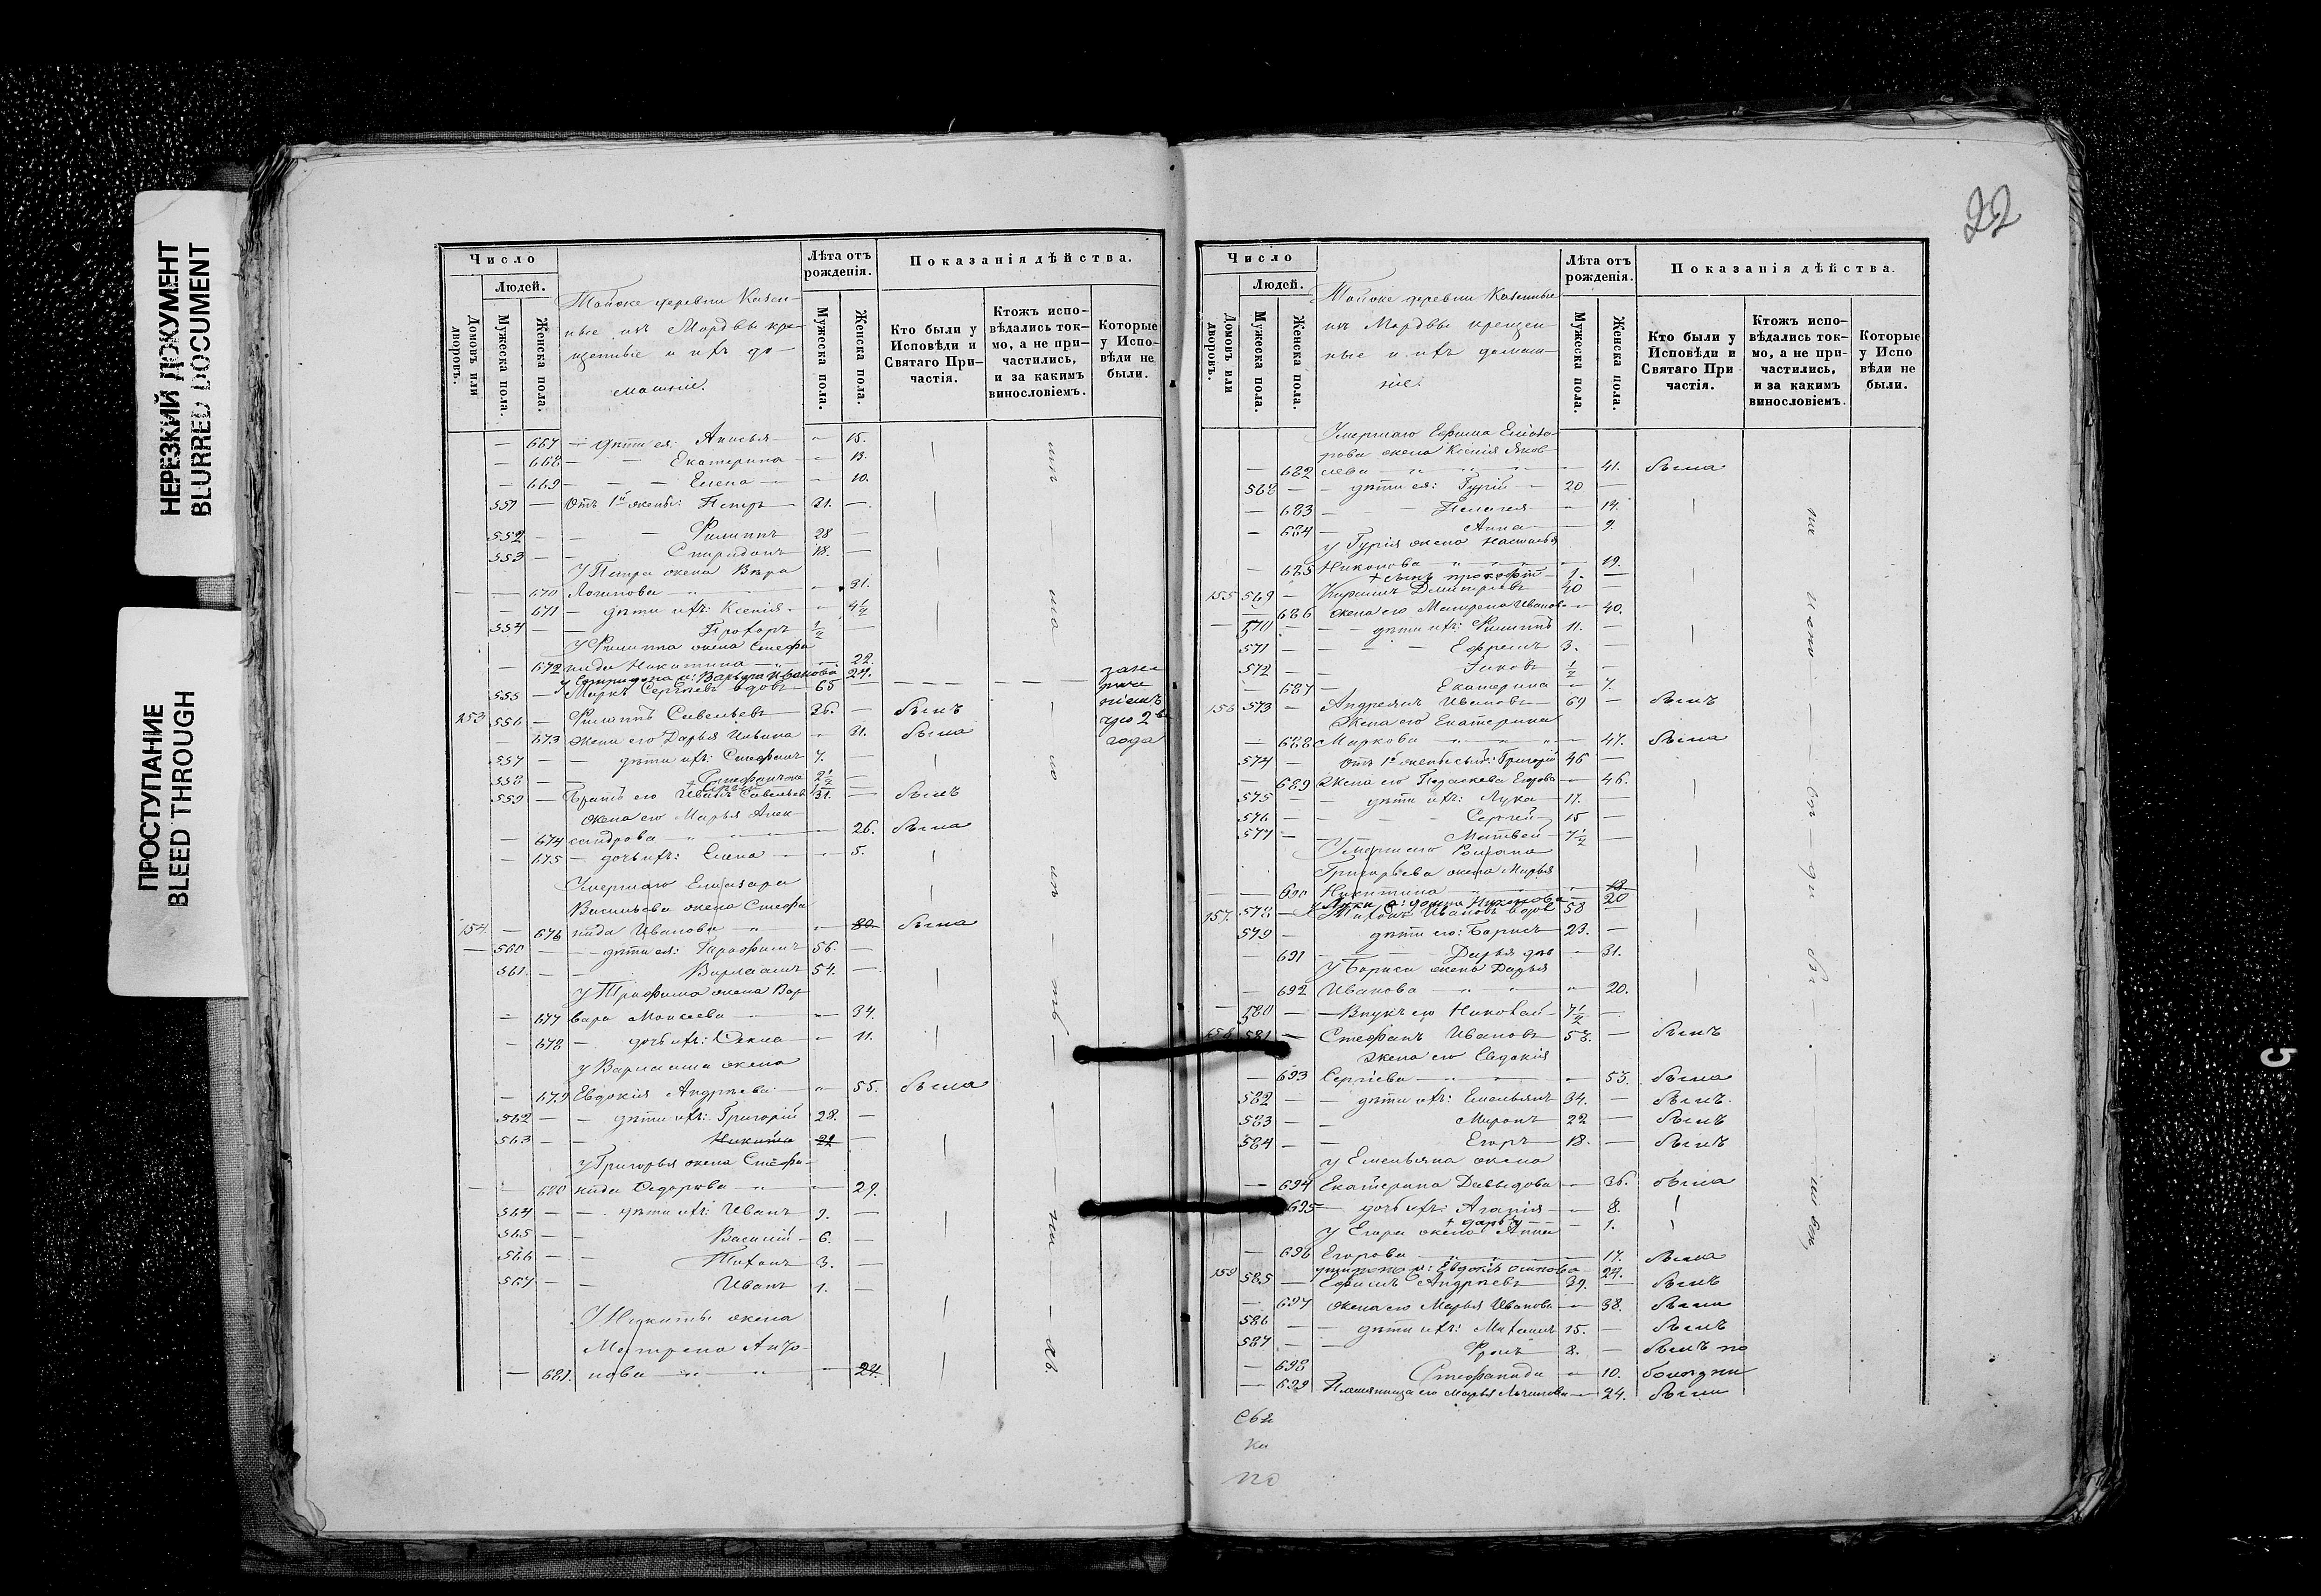 НЕРЕЗКИЙ ДОКУМЕНТ
BLURRED DOCUMENT
ПРОСТУПАНИЕ
BLEED THROUGH
Число
Людей.
Домовъ или дворовъ.
Мужеска пола.
Женска пола.
Тойже деревни Казен-
ные изъ Мордвы кре-
щенные и ихъ до-
машніе.
Лѣта отъ рожденія.
Мужеска пола.
Женска пола.
Показанія дѣйства.
Кто были у Исповѣди и Святаго При-частія.
Ктожъ испо-вѣдались ток-мо, а не при-частились, и за какимъ винословіемъ.
Которые у Испо-вѣди не были.
— 667 — дѣти ея: Анисья — " 15.
— 668 — — Екатерина — " 13.
— 669 — — Елена — — 10.
551 — Отъ 1й жены: Петръ — 31. —
552 — — Филиппъ 28 —
553 — — Спиридонъ 18. —
У Петра жена Вѣра
— — 670 Логинова — " 31.
— 671 — дѣти ихъ: Ксенія — " 4 1/2
554 — — Прохоръ 1/2 —
У Филиппа жена Стефа
— 672 нида Никитина — " 22.
У Спиридона ж: Варвара Иванова 24.
555 — Маркъ Сергѣевъ вдовъ — 65 — — — —
253 556 — Филиппъ Савельевъ — 36. — былъ
— 673 жена его Дарья Ильина — " 31. была
года
557 — — дѣти ихъ: Стефанъ 7. —
558 — — 2 1/2 —
559 — Братъ его Иванъ Савельевъ 31. — былъ
жена его Марья Алек-
— 674 сандрова " " — 26. была
— 675 — дочь ихъ: Елена — " 5.
Умершаго Елиазара
Васильева жена Стефа
154. — 676 нида Иванова " " 80. была
— 560 — — дѣти ея: Трофимъ 56. —
561. — — Варлаамъ 54. —
У Трофима жена Вар-
— 677 вара Моисеева — " 34.
— 678 — дочь ихъ: Фекла — " 11.
у Варлаама жена
— 679 Евдокія Андреева — " 55. была
562 — — дѣти ихъ: Григорій 28. —
563 — — Никита 22 —
у Григорья жена Стефа-
— — 680 нида Федорова — " " 29.
564 — — дѣти ихъ: Иванъ 9. —
565 — — Василій — 6. —
566 — — Тихонъ 3. —
567 — — Иванъ 1. —
У Никиты жена
Матрена
— 681. нова — " " — 24.
22
Число
Людей.
Домовъ или дворовъ.
Мужеска пола.
Женска пола.
Тойже деревни Казенные
изъ Мордвы крещен-
ные и ихъ домаш-
ніе.
Лѣта отъ рожденія.
Мужеска пола.
Женска пола.
Показанія дѣйства.
Кто были у Исповѣди и Святаго При частія.
Ктожъ испо-вѣдались ток-мо, а не при-частились, и за какимъ винословіемъ.
Которые у Испо вѣди не были.
Умершаго Ефима Елиаза-
рова жена Ксенія Яков-
— 682 лева — " " — 41. была
568 — — дѣти ея: Гурій — 20 —
— 683 — — Пелагея — " 14.
— 684 — Анна — — 9.
у Гурія жена Наталья
— 685 Никонова " " — 19.
+ сынъ Прокофій — 1. —
155 569 — Кириллъ Дмитріевъ 40
— 686 жена его Матрена Иванова — " 40.
— 570 — — дѣти ихъ: Филиппъ 11. —
571 — — — Ефремъ 3. —
572 — — Яковъ 1/2 —
— 687 — Екатерина — " 7.
156 573 — Андреянъ Ивановъ — 69 — былъ
Жена его Екатерина
— 688 Маркова — " " — 47. была
574 — Отъ 1й жены сынъ: Григорій 46 —
— 689 Жена его Параскева Егорова — " 46.
575 — — дѣти ихъ: Лука — 17. —
576 — — — Сергей 15 —
577 — — — Матвей — 7 1/2 —
Умершаго Романа
Григорьева жена Марья
— 690 Никитина " " 19
20
157. 578 — Тихонъ Ивановъ вдов 58 —
579 — дѣти его: Борисъ — 23. —
— 691 — — Дарья дѣв — 31.
У Бориса жена Дарья
— 692 Иванова — " " 20.
— 580 — — Внукъ его Николай — 7 1/2 —
158 581 — Стефанъ Ивановъ — 58. — былъ
Жена его Евдокія
— 693 Сергіева — " — 53. была
582 — — дѣти ихъ: Емельянъ 34. — былъ
583 — — Миронъ 22 — былъ
584 — — Егоръ — 18. — былъ
у Емельяна жена
— 694 Екатерина Давыдова — " 36. была
695 — дочь ихъ: Агапія — " 8.
+ дарья — — 1.
у Егора жена Анна
— 696 Егорова — " " — 17. была
27.
159 585 — Ефимъ Андреевъ — 39. — былъ
— 697 жена его Марья Иванова — " 38. была
586 — — дѣти ихъ: Михаилъ 15. — былъ
587 — — Фролъ 8. — былъ по
— 698 Стефанида — " 10. болѣзни
— 699 Племянница его Марья — " 24. была
по
5